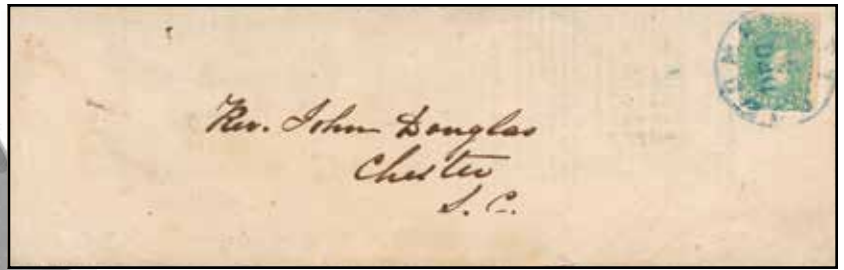 Rev. John Douglas
Chester
S. C.